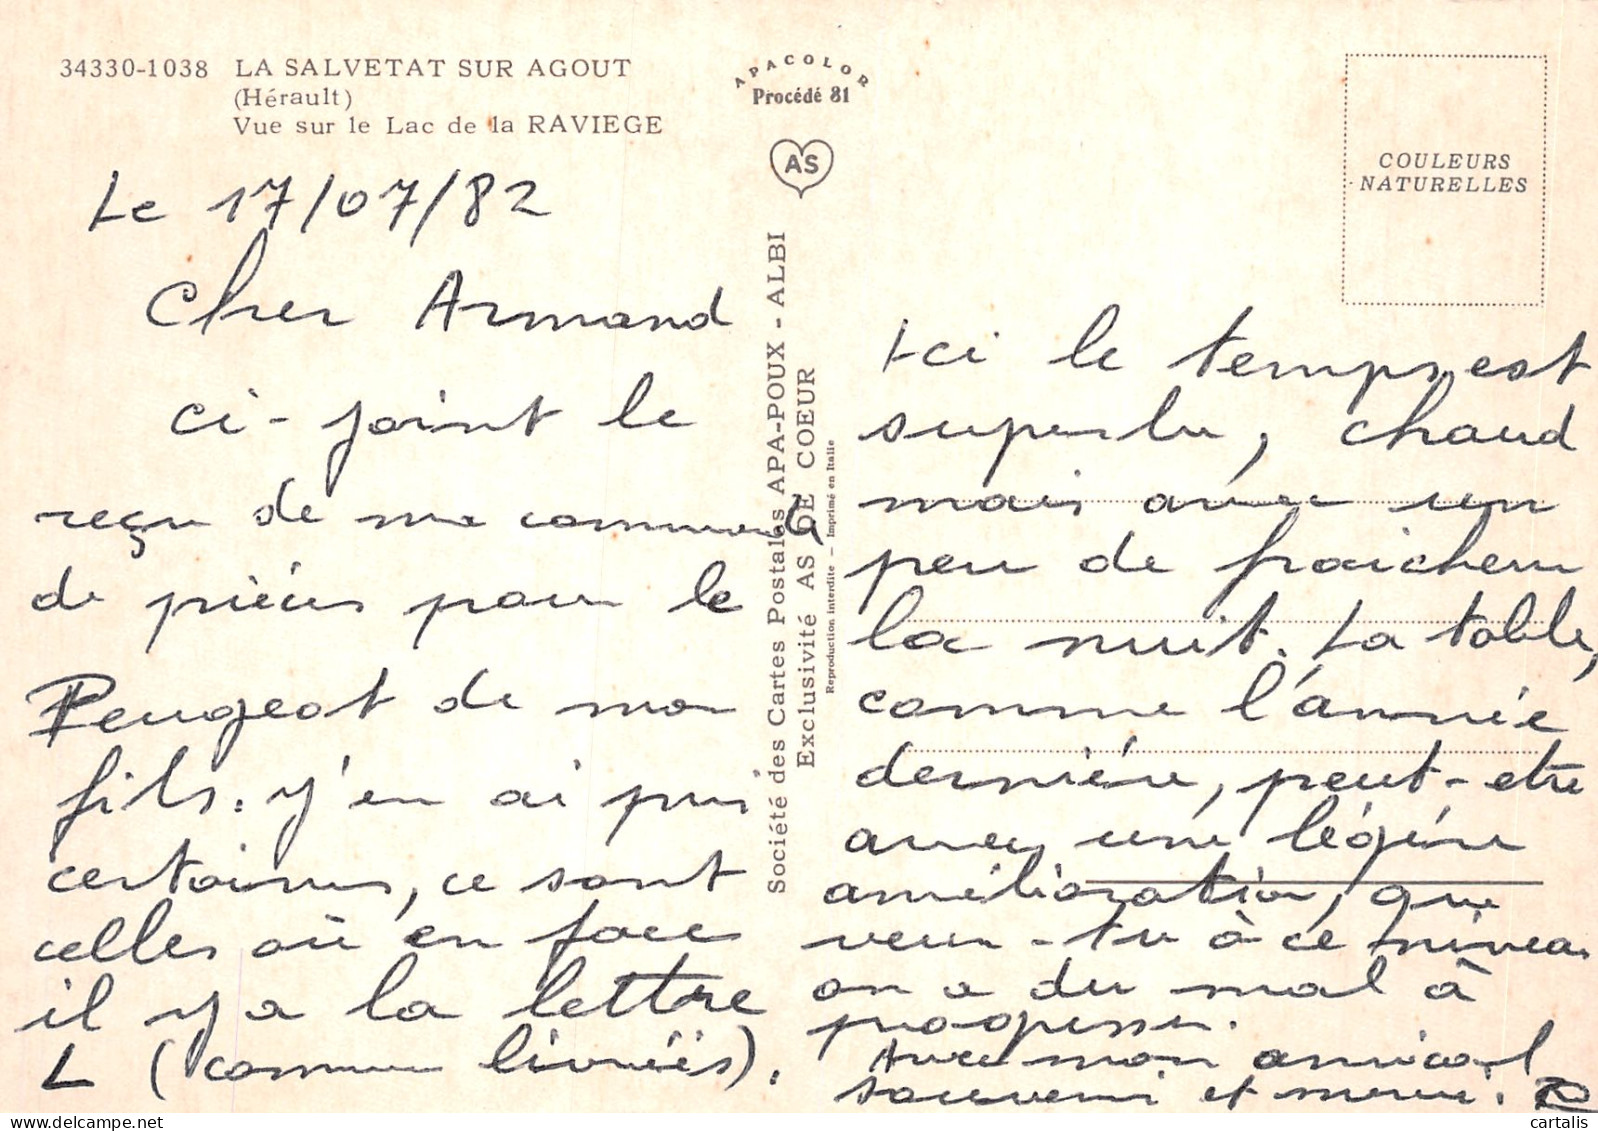 34330-1038 LA SALVETAT SUR AGOUT
(Hérault)
Vue sur le Lac de la RAVIEGE
APACOLOR
Procédé 81
AS
COULEURS
NATURELLES
Société des Cartes Postales APA-POUX - ALBI
Exclusivité AS DE COEUR
Reproduction interdite - Imprimé en Italie
Le 17/07/82
Cher Armand
ci-joint le
reçu de ma commande
de pièces pour la
Peugeot de mon
fils. j'en ai pris
certaines, ce sont
celles où en face
il y a la lettre
L (comme livrées).
Ici le temps est
superbe, chaud
mais avec un
peu de fraicheur
la nuit. La table,
comme l'année
dernière, peut-etre
avec une légère
amélioration, que
veux-tu à ce niveau
on a du mal à
progresser.
Avec mon amical
souvenir et merci.
cartalis